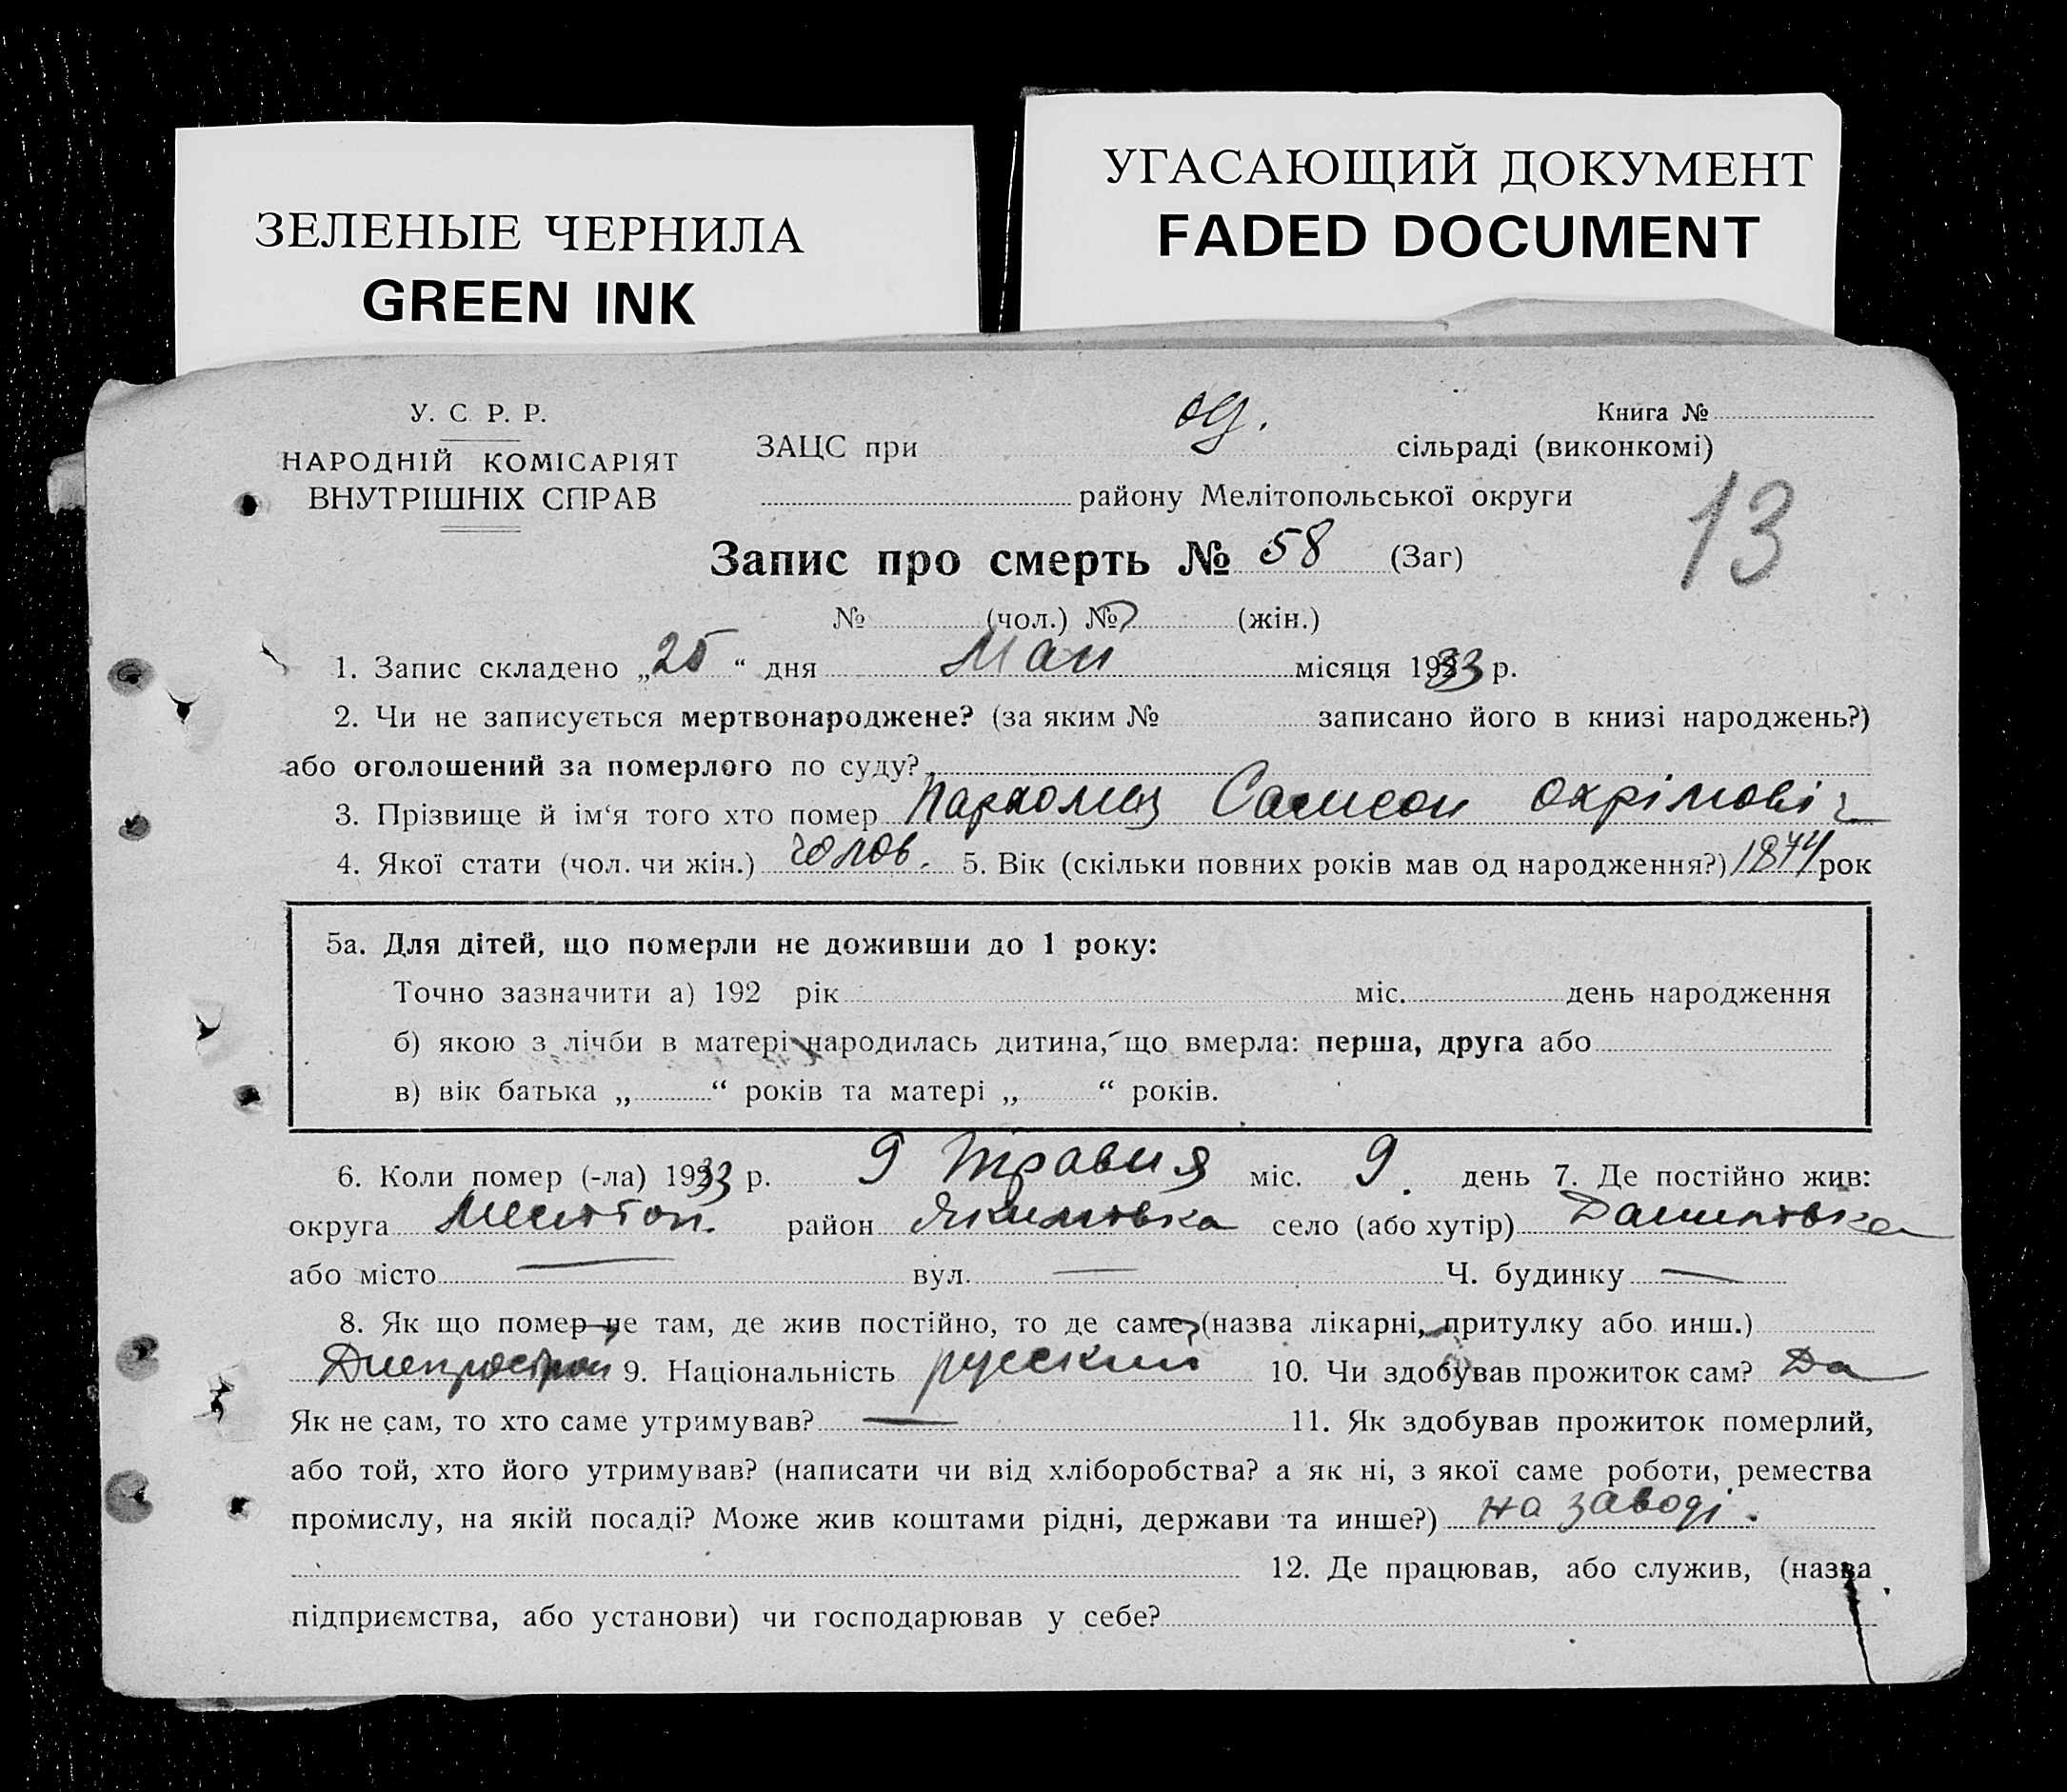 ЗЕЛЕНЫЕ ЧЕРНИЛА
GREEN INK
УГАСАЮЩИЙ ДОКУМЕНТ
FADED DOCUMENT
У. С. Р. Р.
НАРОДНІЙ КОМІСАРІЯТ
ВНУТРІШНІХ СПРАВ
Книга №
ЗАЦС при сільраді (виконкомі)
району Мелітопольської округи
13
Запис про смерть № 58 (Заг)
№ (чол.) № (жін.)
1. Запис складено „25“ дня Маи місяця 1933 р.
2. Чи не записується мертвонароджене? (за яким № записано його в книзі народжень?)
або оголошений за померлого по суду?
3. Прізвище й ім‘я того хто помер Пархомец Самсон Охрімовіч
4. Якої стати (чол. чи жін.) чолов. 5. Вік (скільки повних років мав од народження?) 1874 рок
5а. Для дітей, що померли не доживши до 1 року:
Точно зазначити а) 192 рік міс. день народження
б) якою з лічби в матері народилась дитина, що вмерла: перша, друга або
в) вік батька „ “ років та матері „ “ років.
6. Коли помер (-ла) 1933 р. 9 травня міс. 9. день 7. Де постійно жив:
округа Мелітоп. район Якимовка село (або хутір) Даниловка
або місто — вул. — Ч. будинку —
8. Як що помер не там, де жив постійно, то де саме, (назва лікарні, притулку або инш.)
Днепрострой 9. Національність русский 10. Чи здобував прожиток сам? Да
Як не сам, то хто саме утримував? — 11. Як здобував прожиток померлий,
або той, хто його утримував? (написати чи від хліборобства? а як ні, з якої саме роботи, ремества
промислу, на якій посаді? Може жив коштами рідні, держави та инше?) на заводі.
12. Де працював, або служив, (назва
підприємства, або установи) чи господарював у себе?